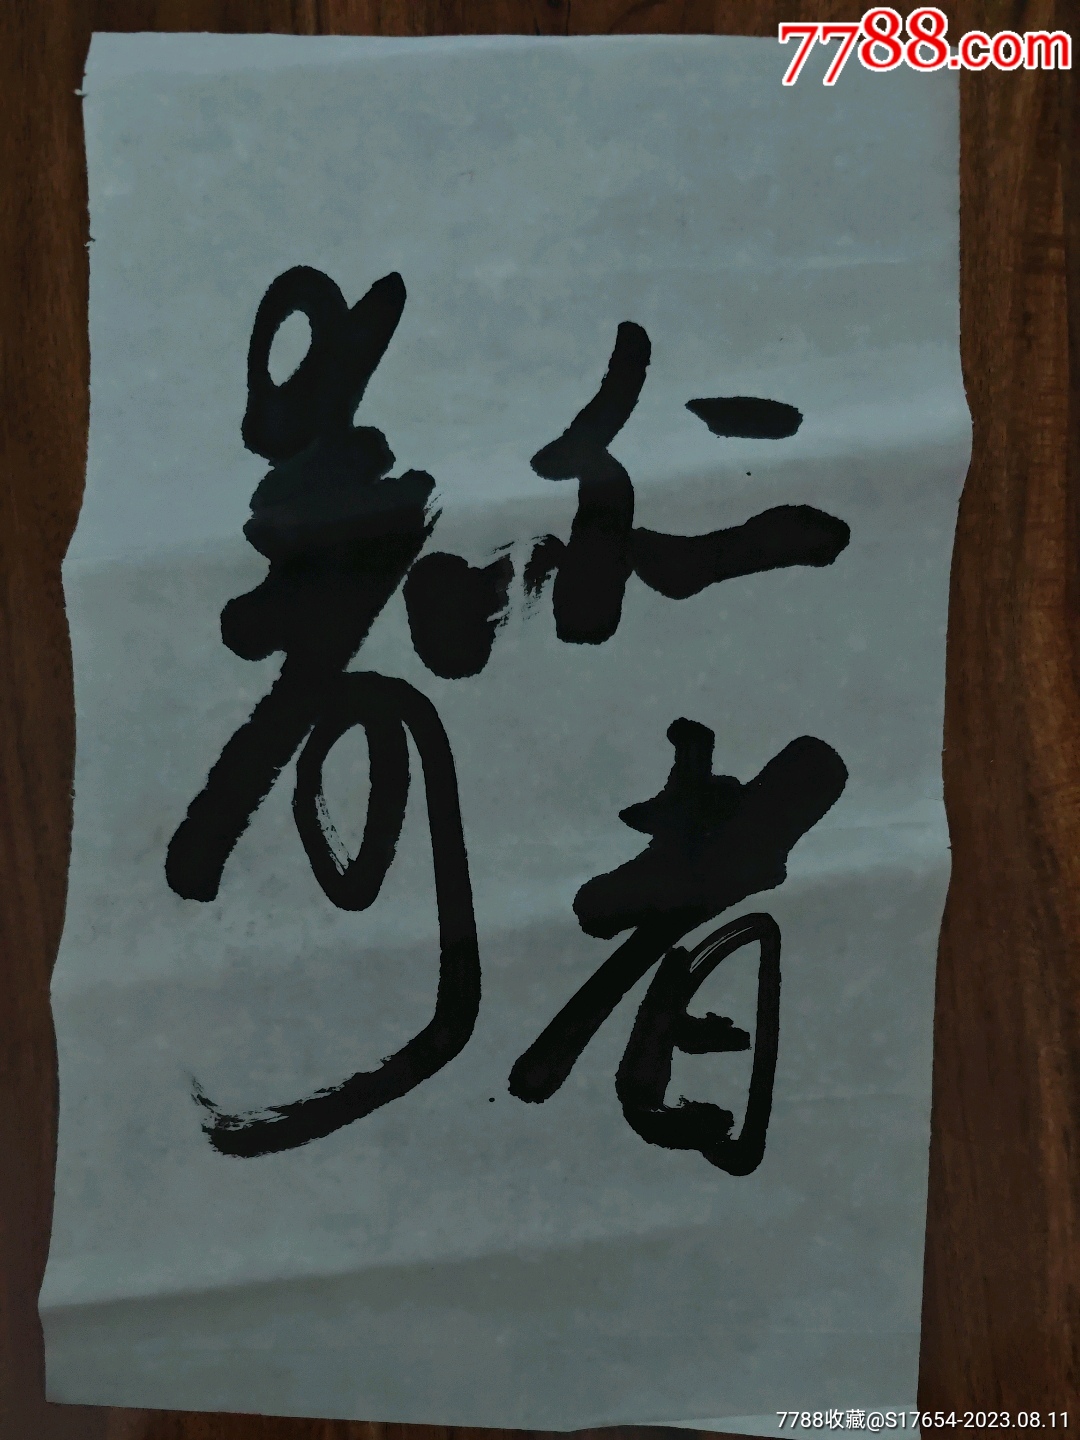 7788.com
仁者
寿
7788收藏@S17654-2023.08.11